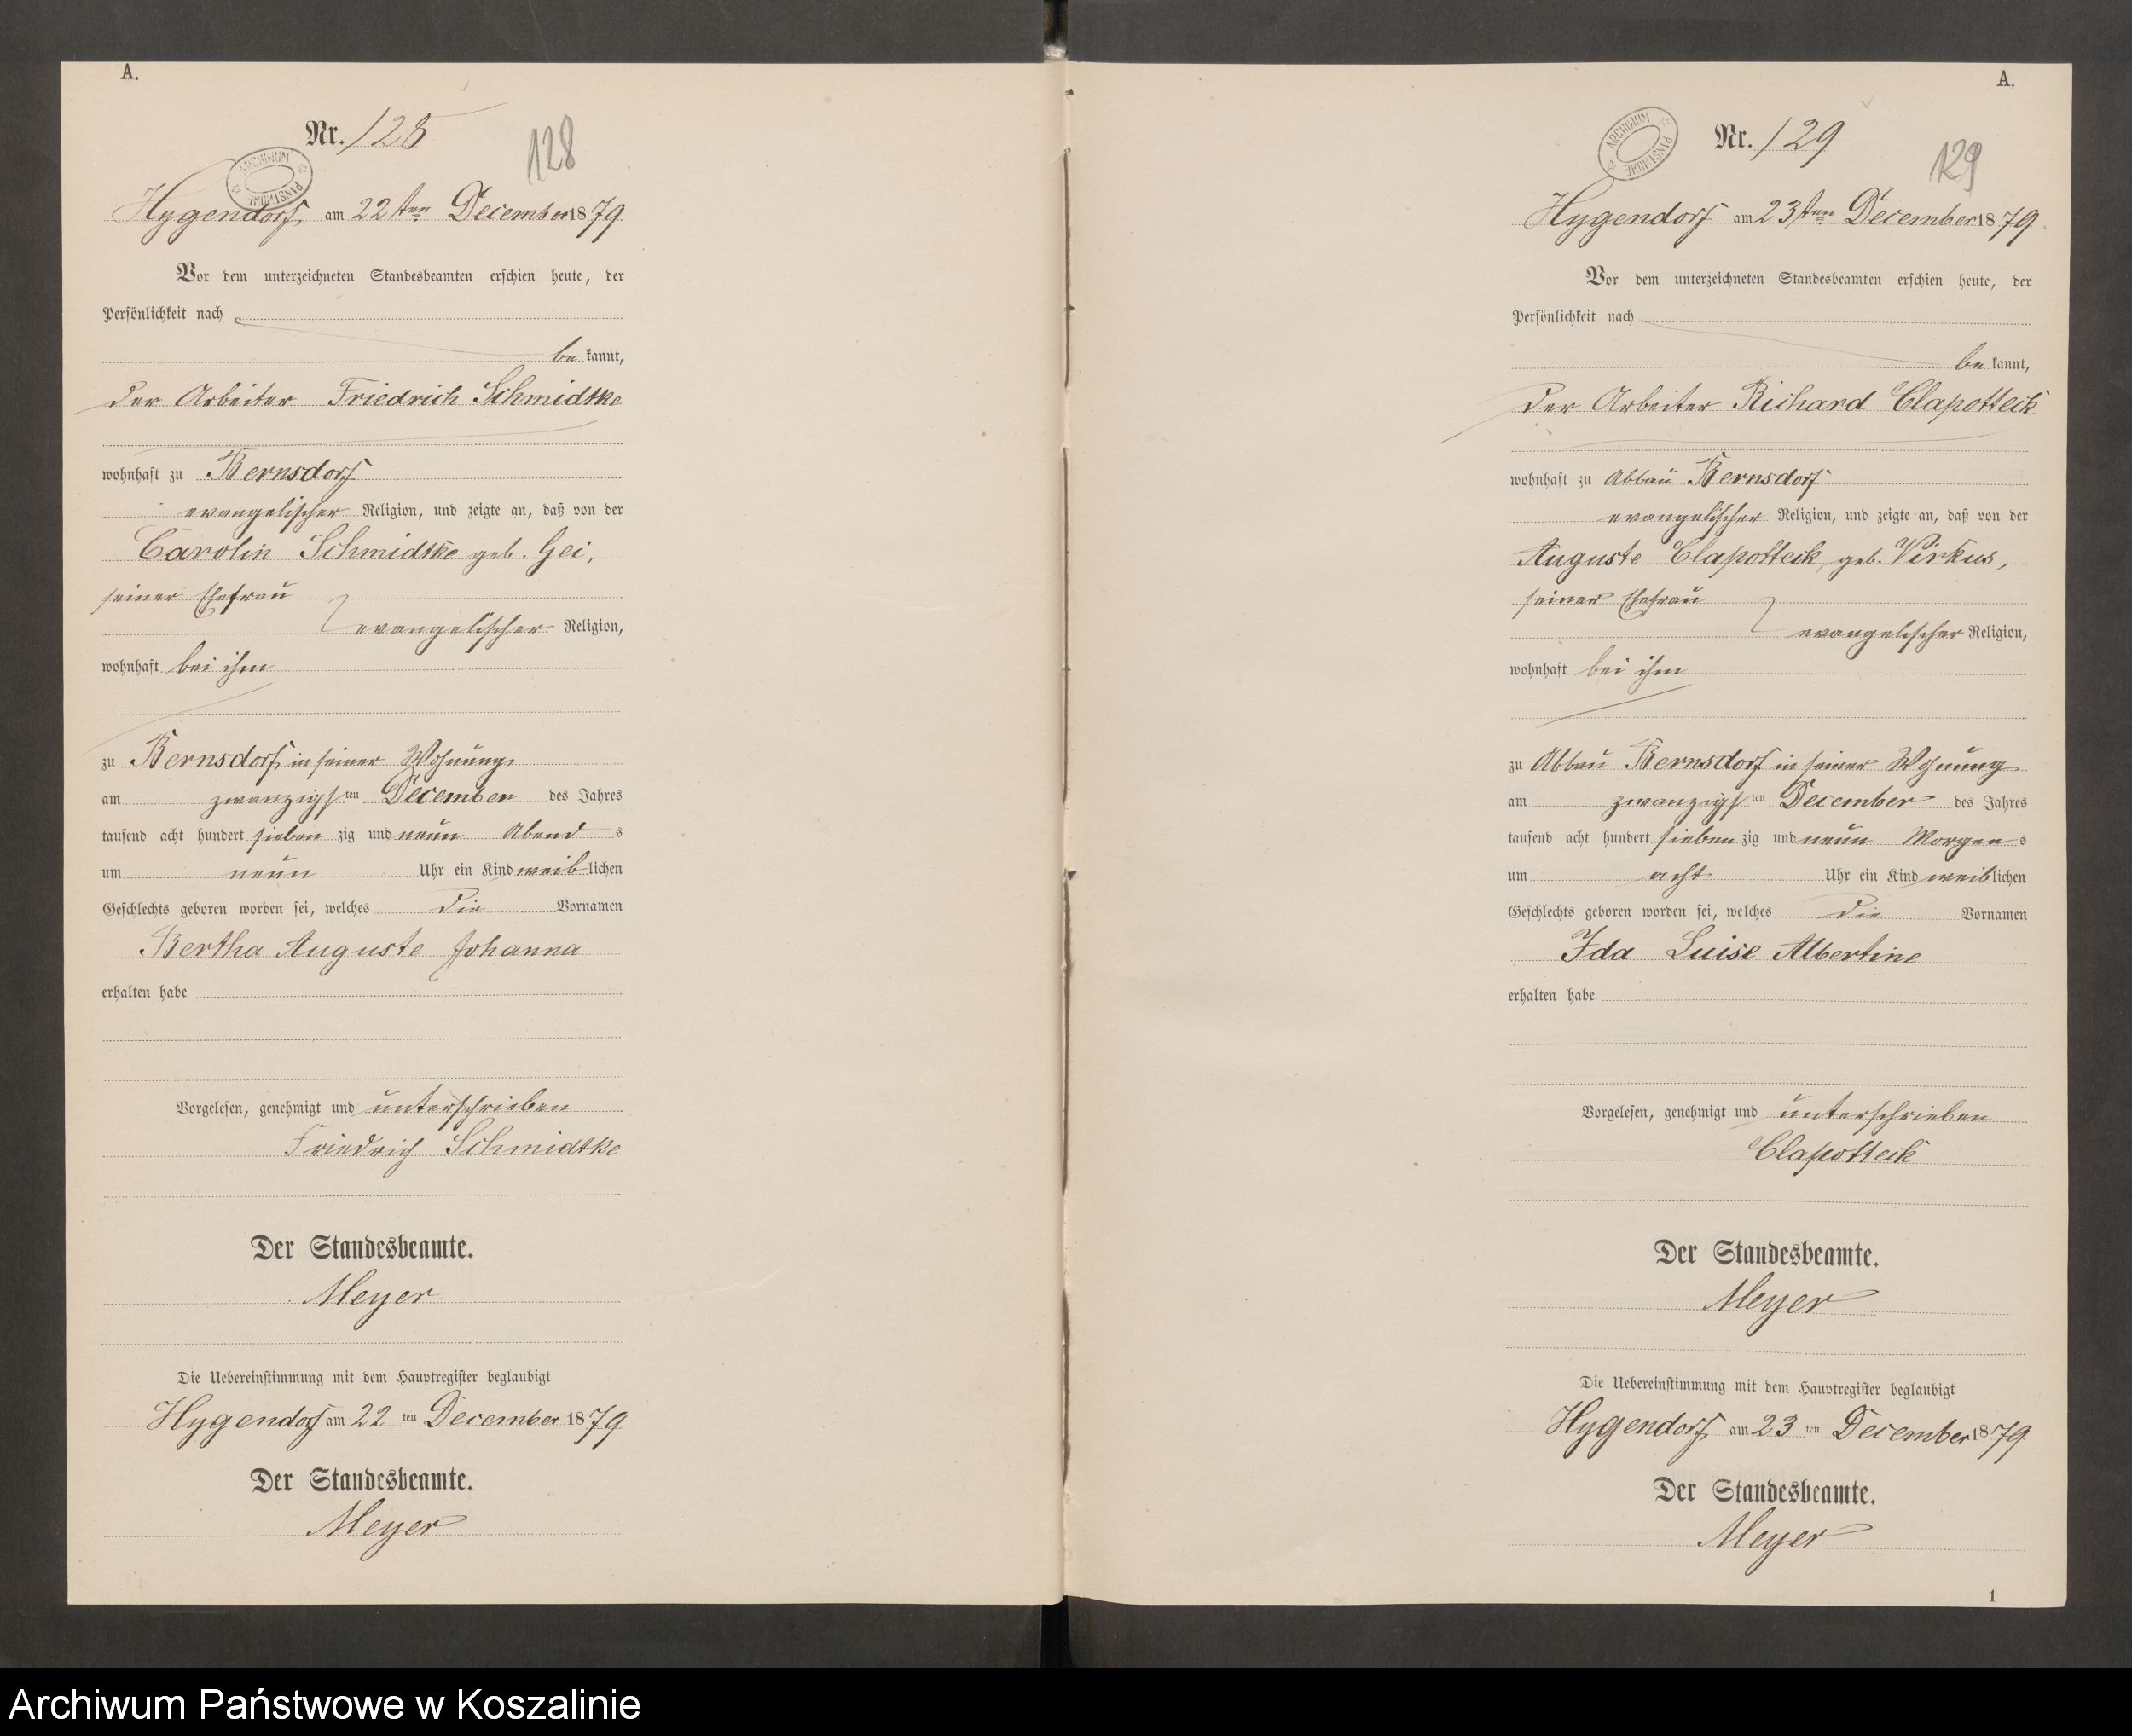 A.
Nr. 128
128
ARCHIWUM PAŃSTWOWE
Hygendorf, am 22sten December 1879.
Vor dem unterzeichneten Standesbeamten erschien heute, der
Persönlichkeit nach
be kannt,
der Arbeiter Friedrich Schmidtke
wohnhaft zu Bernsdorf
evangelischer Religion, und zeigte an, daß von der
Carolin Schmidtke geb. Gei,
seiner Ehefrau
evangelischer Religion,
wohnhaft bei ihm
zu Bernsdorf, in seiner Wohnung,
am zwanzigsten December des Jahres
tausend acht hundert sieben zig und neun Abend s
um neun Uhr ein Kind weiblichen
Geschlechts geboren worden sei, welches die Vornamen
Bertha Auguste Johanna
erhalten habe
Vorgelesen, genehmigt und unterschrieben
Friedrich Schmidtke
Der Standesbeamte.
Meyer
Die Uebereinstimmung mit dem Hauptregister beglaubigt
Hygendorf am 22 ten December 1879
Der Standesbeamte.
Meyer
A.
ARCHIWUM PAŃSTWOWE
Nr. 129
129
Hygendorf am 23sten December 1879.
Vor dem unterzeichneten Standesbeamten erschien heute, der
Persönlichkeit nach
be kannt,
der Arbeiter Richard Clapotteck
wohnhaft zu Abbau Bernsdorf
evangelischer Religion, und zeigte an, daß von der
Auguste Clapotteck, geb. Virkus,
seiner Ehefrau
evangelischer Religion,
wohnhaft bei ihm
zu Abbau Bernsdorf in seiner Wohnung
am zwanzigsten December des Jahres
tausend acht hundert sieben zig und neun Morgen s
um acht Uhr ein Kind weiblichen
Geschlechts geboren worden sei, welches die Vornamen
Ida Luise Albertine
erhalten habe
Vorgelesen, genehmigt und unterschrieben
Clapotteck
Der Standesbeamte.
Meyer
Die Uebereinstimmung mit dem Hauptregister beglaubigt
Hygendorf, am 23 ten December 1879.
Der Standesbeamte.
Meyer
1
Archiwum Państwowe w Koszalinie